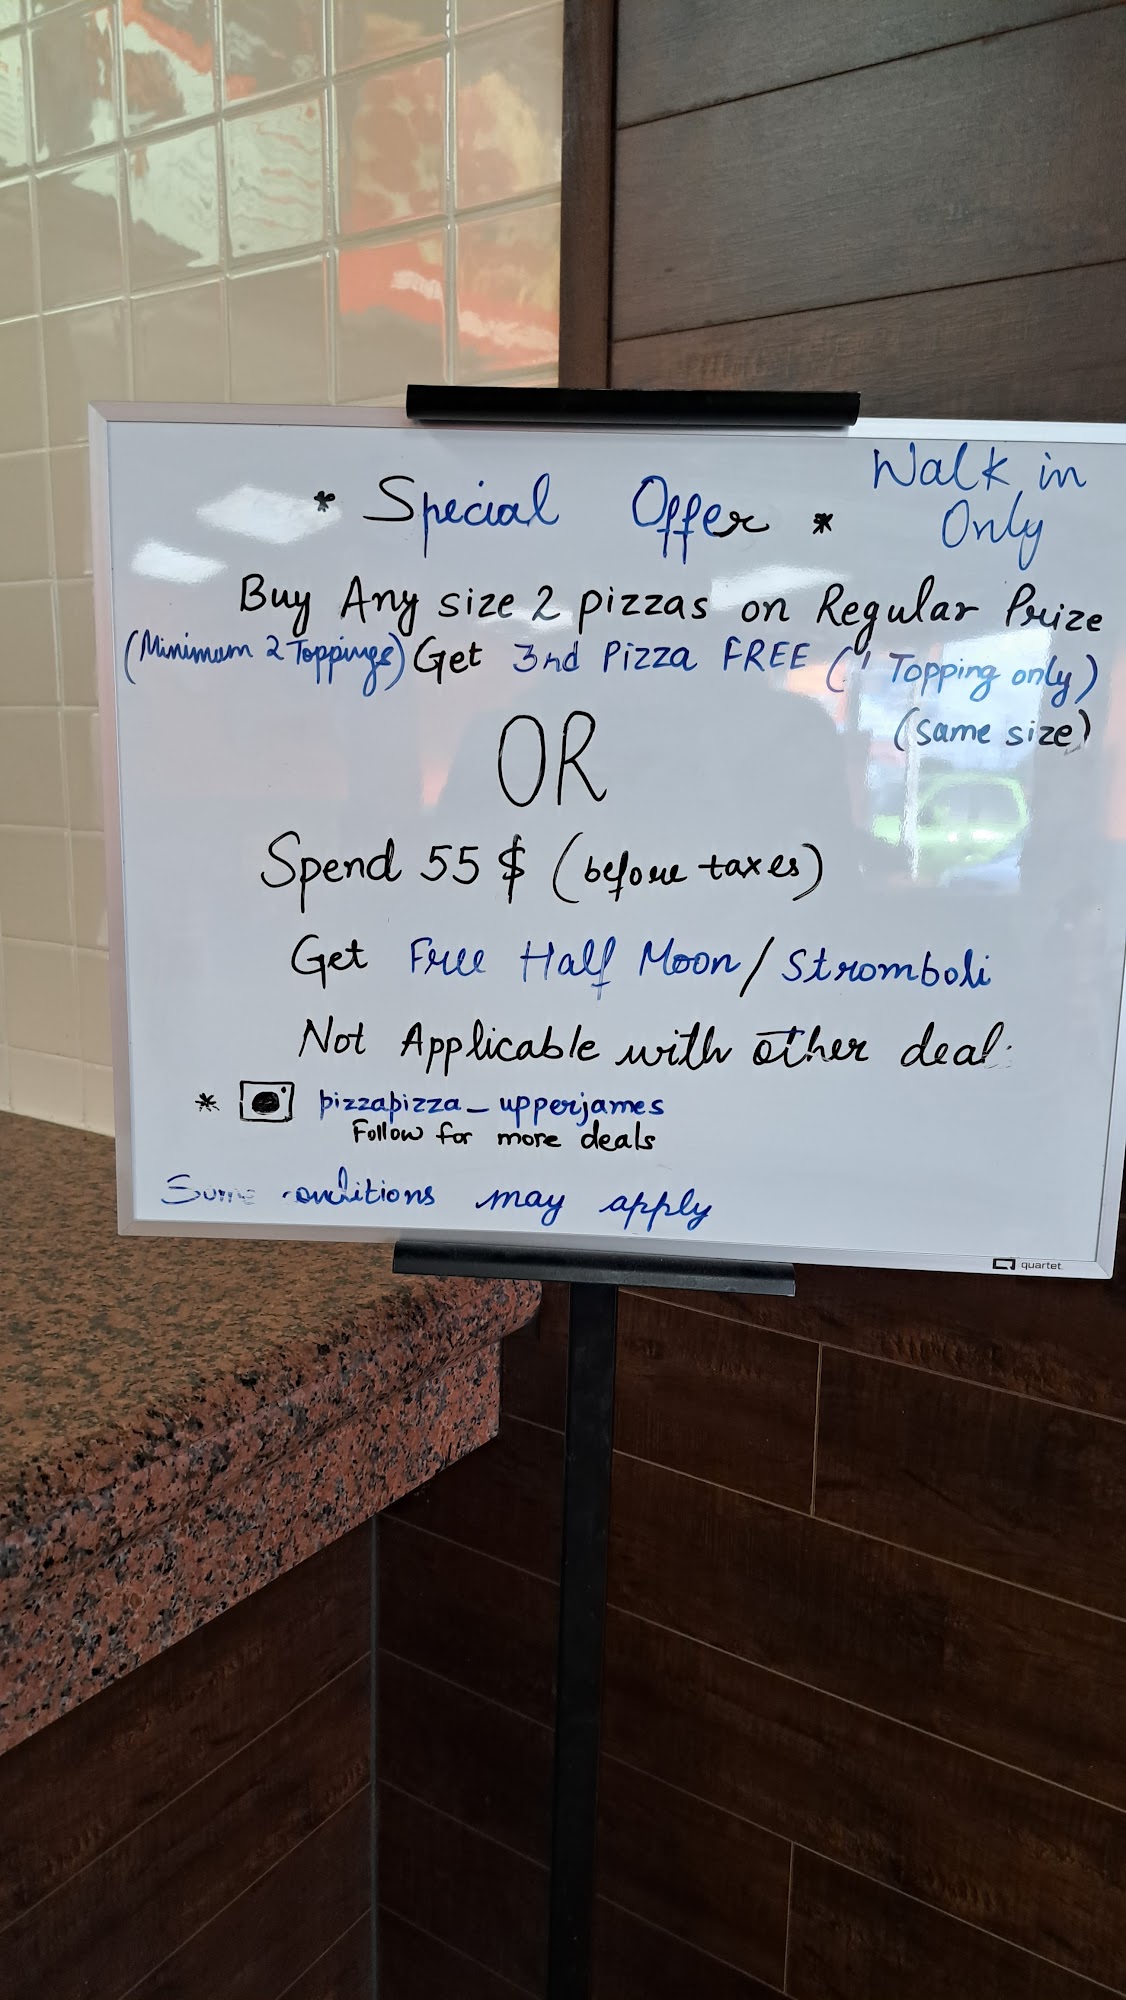 * Special Offer *
Walk in
Only
Buy Any size 2 pizzas on Regular Prize
(Minimum 2 Toppings) Get 3nd Pizza FREE (1 Topping only)
(same size)
OR
Spend 55 $ (before taxes)
Get Free Half Moon / Stromboli
Not Applicable with other deal
* pizzapizza_upperjames
Follow for more deals
Some conditions may apply
quartet